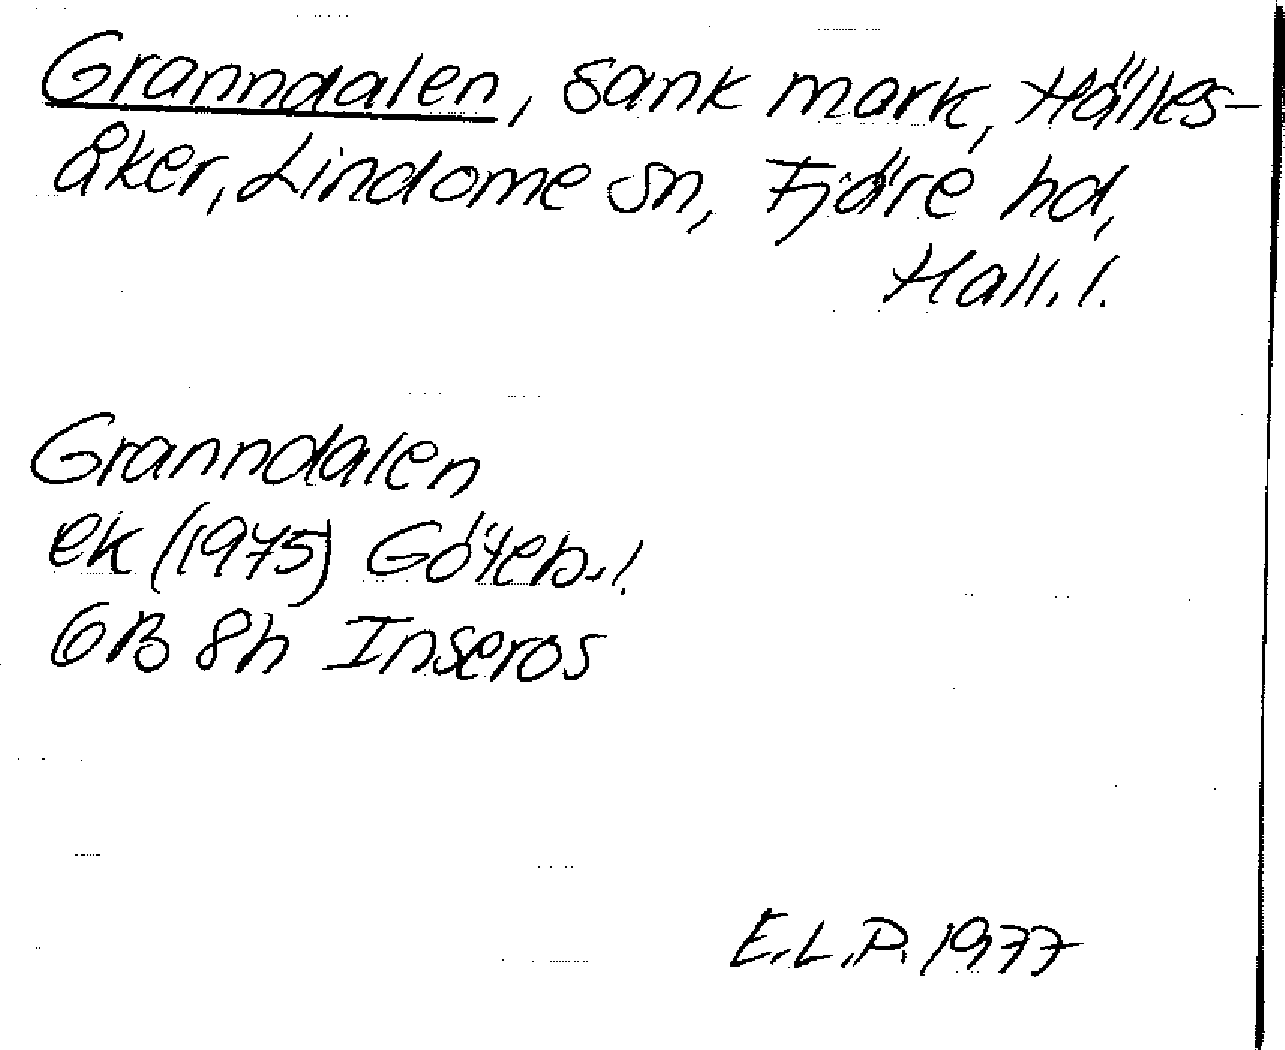 Granndalen, sank mark, Hälles-
åker, Lindome sn, Fjäre hd,
Hall. l.
Granndalen
ek (1975) Göteb. l.
6B 8h Inseros
E.L.P. 1977